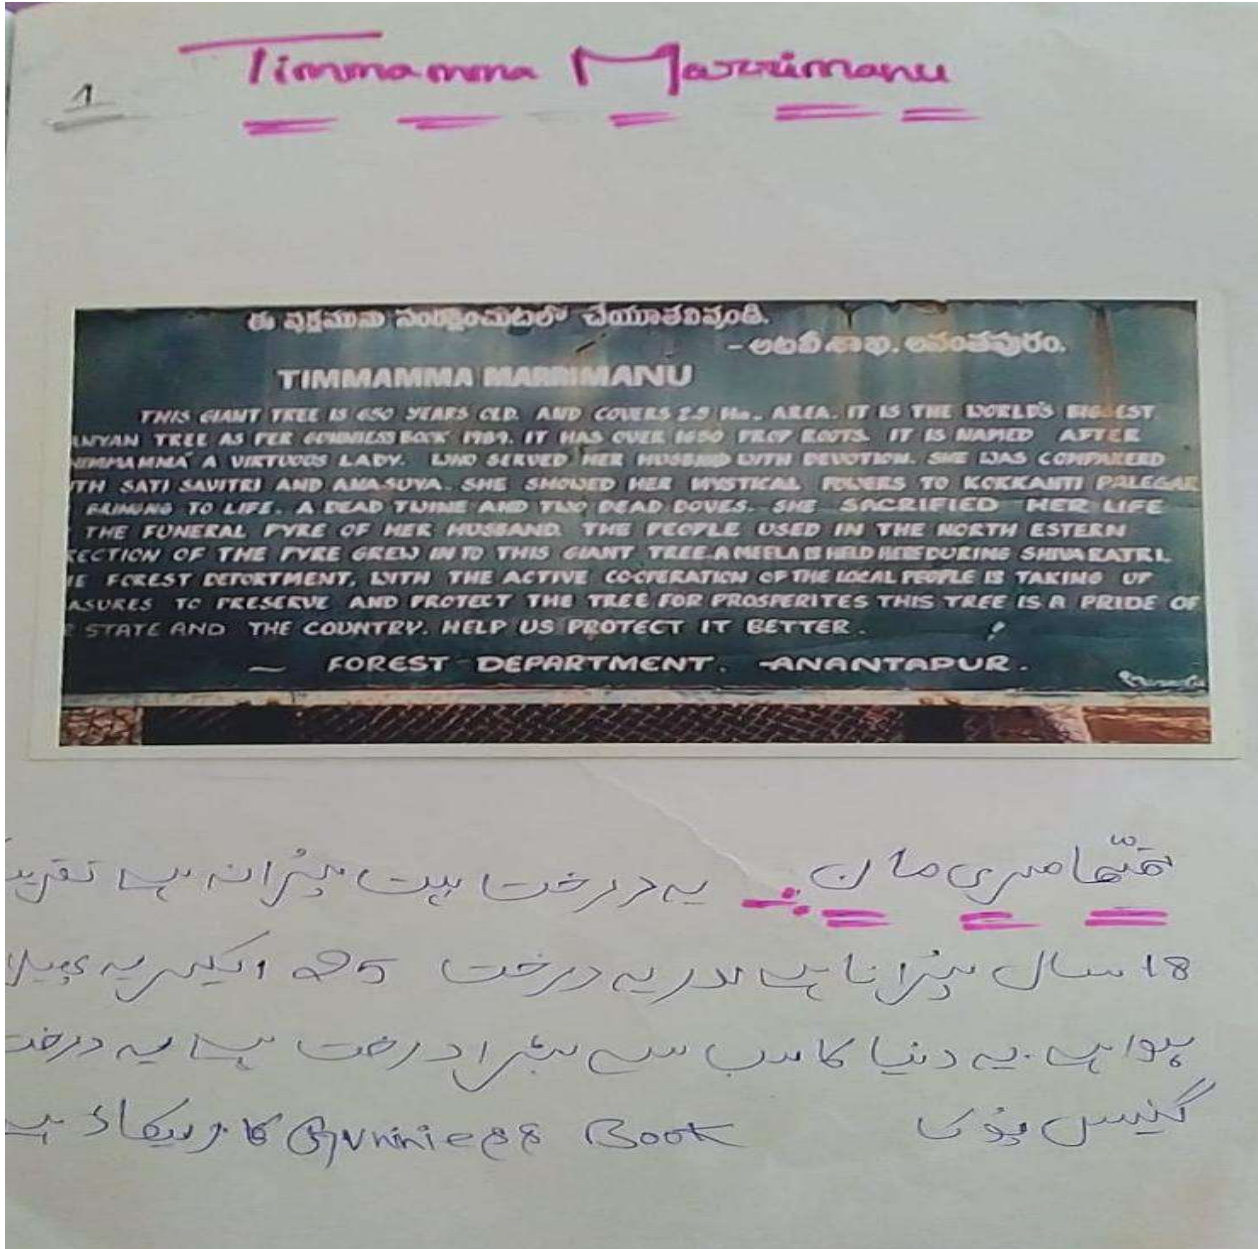 Timmamma Marrimanu
1
ఈ వృక్షమును సంరక్షించుటలో చేయూతనివ్వండి.
- అటవీశాఖ. అనంతపురం.
TIMMAMMA MARRIMANU
THIS GIANT TREE IS 650 YEARS OLD. AND COVERS 2.5 Ha. AREA. IT IS THE WORLD'S BIGGEST
ANYAN TREE AS PER GUNNIESS BOOK 1989. IT HAS OVER 1650 PROP ROOTS. IT IS NAMED AFTER
TIMMAMMA" A VIRTUOUS LADY. WHO SERVED HER HUSBAND WITH DEVOTION. SHE WAS COMPARERD
TH SATI SAVITRI AND ANASUYA. SHE SHOWED HER MYSTICAL POWERS TO KOKKANTI PALEGAR
BRINING TO LIFE. A DEAD TWINE AND TWO DEAD DOVES. SHE SACRIFIED HER LIFE
THE FUNERAL PYRE OF HER HUSBAND. THE PEOPLE USED IN THE NORTH ESTERN
RECTION OF THE PYRE GREW INTO THIS GIANT TREE. A MEELA IS HELD HERE DURING SHIVARATRI.
E FOREST DEPORTMENT, WITH THE ACTIVE CO-OPERATION OF THE LOCAL PEOPLE IS TAKING UP
ASURES TO PRESERVE AND PROTECT THE TREE FOR PROSPERITES THIS TREE IS A PRIDE OF
STATE AND THE COUNTRY. HELP US PROTECT IT BETTER. !
— FOREST DEPARTMENT. -ANANTAPUR.
مری مان :- یہ درخت بہت پُرانہ ہے
18 سال پُرانا ہے اور یہ درخت 25 ایکر پہ
ہوا ہے۔ یہ دنیا کا سب سے بڑا درخت ہے یہ درخت
گنیس بُوک Gunniess Book کا ریکاڈ ہے